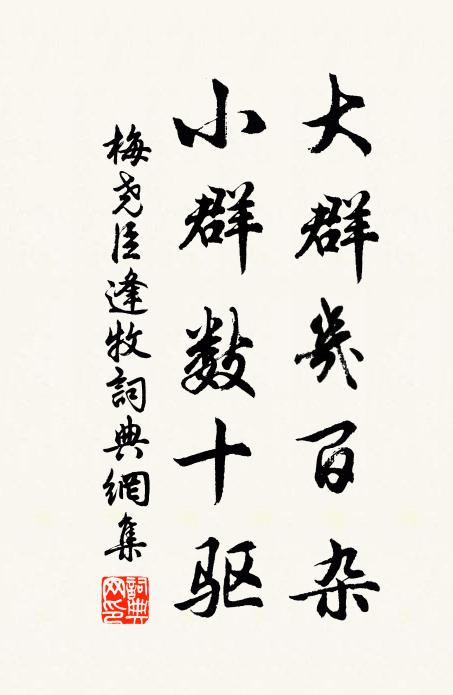 大群幾百杂
小群数十驱
梅尧臣逢牧詞典網集
詞典网印